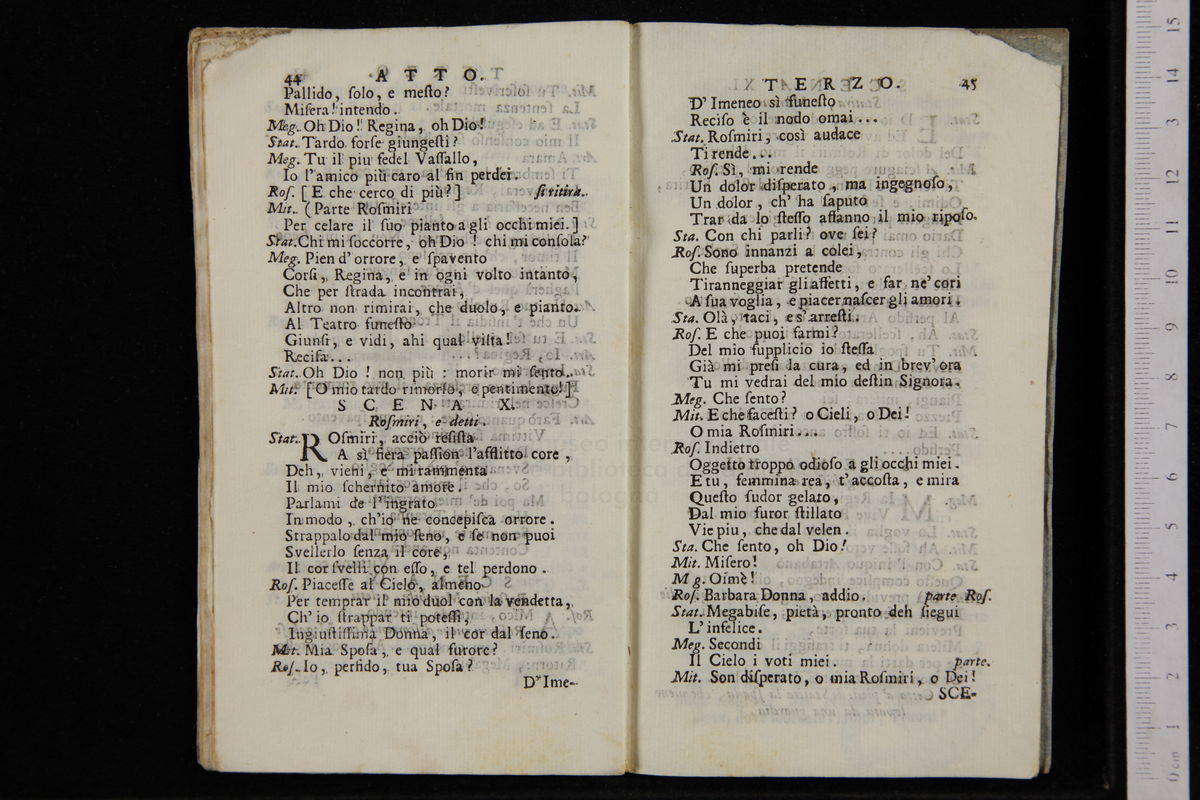 44 A T T O.
Pallido, ſolo, e meſto?
Miſera! intendo.
Meg. Oh Dio! Regina, oh Dio!
Stat. Tardo forſe giungeſti?
Meg. Tu il piu fedel Vaſſallo,
Io l'amico più caro al fin perdei.
Roſ. [ E che cerco di più? ] ſi ritira.
Mit. ( Parte Roſmiri
Per celare il ſuo pianto a gli occhi miei. ]
Stat. Chi mi ſoccorre, oh Dio ! chi mi conſola?
Meg. Pien d'orrore, e ſpavento
Corſi, Regina, e in ogni volto intanto,
Che per ſtrada incontrai,
Altro non rimirai, che duolo, e pianto.
Al Teatro funeſto
Giunſi, e vidi, ahi qual viſta!
Reciſa...
Stat. Oh Dio ! non più : morir mi ſento.
Mit. [ O mio tardo rimorſo, o pentimento! ]
S C E N A X.
Roſmiri, e detti.
Stat. ROſmiri, acciò reſiſta
A sì fiera paſſion l'afflitto core,
Deh, vieni, e mi rammenta
Il mio ſchernito amore.
Parlami de l'ingrato
In modo, ch'io ne concepiſca orrore.
Strappalo dal mio ſeno, e ſe non puoi
Svellerlo ſenza il core,
Il cor ſvelli con eſſo, e tel perdono.
Roſ. Piaceſſe al Cielo, almeno
Per temprar il mio duol con la vendetta,
Ch' io ſtrappar ti poteſſi,
Ingiuſtiſſima Donna, il cor dal ſeno.
Mit. Mia Spoſa, e qual furore?
Roſ. Io, perfido, tua Spoſa?
D'Ime-
T E R Z O. 45
D' Imeneo sì funeſto
Reciſo è il nodo omai...
Stat. Roſmiri, così audace
Ti rende...
Roſ. Sì, mi rende
Un dolor diſperato, ma ingegnoſo,
Un dolor, ch' ha ſaputo
Trar da lo ſteſſo affanno il mio ripoſo.
Sta. Con chi parli? ove ſei?
Roſ. Sono innanzi a colei,
Che ſuperba pretende
Tiranneggiar gli affetti, e far ne' cori
A ſua voglia, e piacer naſcer gli amori.
Sta. Olà, taci, e s'arreſti.
Roſ. E che puoi farmi?
Del mio ſupplicio io ſteſſa
Già mi preſi la cura, ed in brev' ora
Tu mi vedrai del mio deſtin Signora.
Meg. Che ſento?
Mit. E che faceſti? o Cieli, o Dei!
O mia Roſmiri...
Roſ. Indietro
Oggetto troppo odioſo a gli occhi miei.
E tu, femmina rea, t' accoſta, e mira
Queſto ſudor gelato,
Dal mio furor ſtillato
Vie piu, che dal velen.
Sta. Che ſento, oh Dio!
Mit. Miſero!
M g. Oimè!
Roſ. Barbara Donna, addio. parte Roſ.
Stat. Megabiſe, pietà, pronto deh ſiegui
L' infelice.
Meg. Secondi
Il Cielo i voti miei. parte.
Mit. Son diſperato, o mia Roſmiri, o Dei!
SCE-